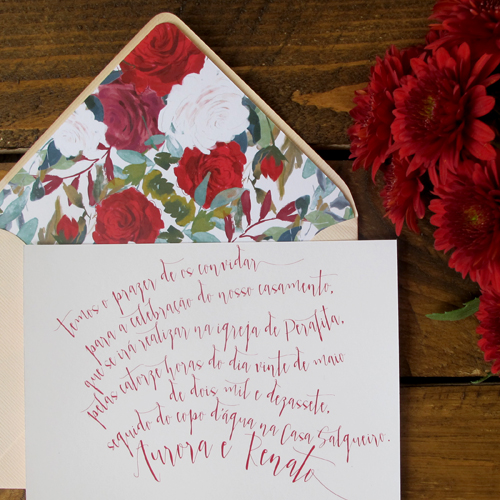 Temos o prazer de os convidar
para a celebração do nosso casamento,
que se irá realizar na igreja de Perafita,
pelas catorze horas do dia vinte de maio
de dois mil e dezassete,
seguido do copo d'água na Casa Salgueiro.
Aurora e Renato